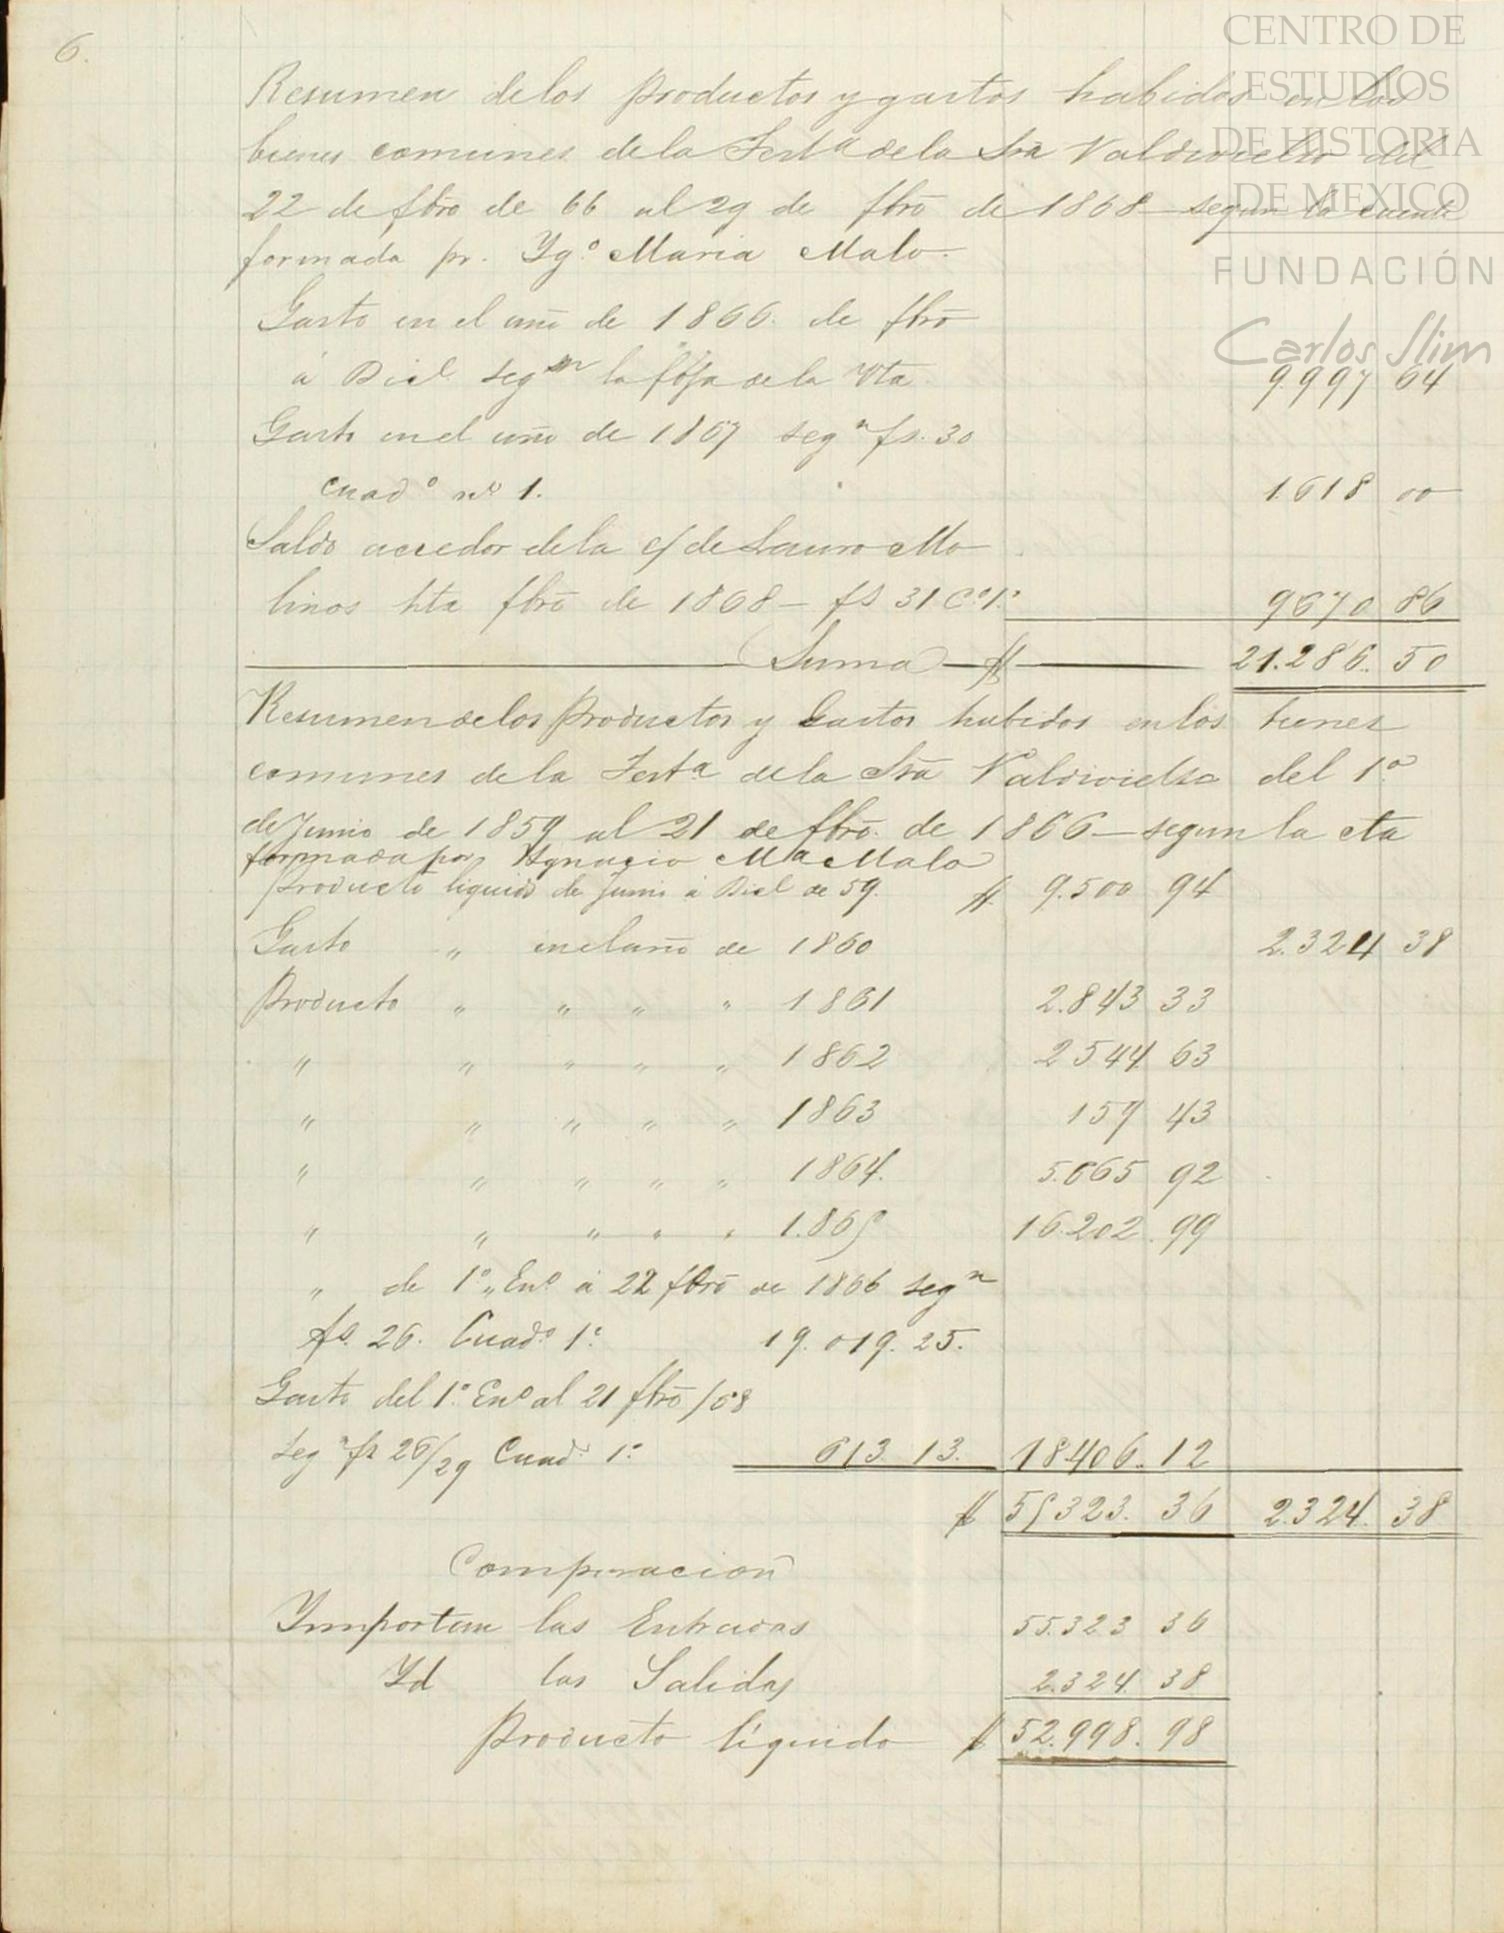 CENTRO DE
ESTUDIOS
DE HISTORIA
DE MEXICO
FUNDACIÓN
Carlos Slim
6.
Resumen de los productos y gastos habidos en los
bienes comunes de la Testa de la Sra Valdivielso del
22 de fbro de 66 al 29 de fbro de 1868 segun la cuenta
formada pr. Ygo Maria Malo.
Gasto en el año de 1866. de fbro
á Dice segn la foja de la Vta. 9.997 64
Gasto en el año de 1867 segn fs. 30
Cuado no 1. 1.618 00
Saldo acredor de la c/ de Lauro Mo
linos hta fbro de 1868 - fs 31 Co 1o 9670 86
Suma $ 21.286. 50
Resumen de los Productos y Gastos habidos en los bienes
comunes de la Testa de la Sra Valdivielso del 1o
de Junio de 1859 al 21 de fbro. de 1866 - segun la cta
formada por Ygnacio Ma Malo
Producto liquido de Junio á Dice de 59. $ 9.500 94
Gasto " en el año de 1860 2.324 38
Producto " " " " 1861 2.843 33
" " " " " 1862 2544 63
" " " " " 1863 159 43
" " " " " 1864. 5.665 92
" " " " " 1.865 16.202. 99
" de 1o " Eno á 22 fbro de 1866 segn
fs. 26. Cuado 1o 19.019. 25.
Gasto del 1o Eno al 21 fbro / 68
segn fs 26/29 Cuado 1o 613 13. 18.406. 12
$ 55323. 36 2.324. 38
Comparacion
Ymportan las Entradas 55.323 36
Yd las Salidas 2.324. 38
Producto líquido $ 52.998. 98